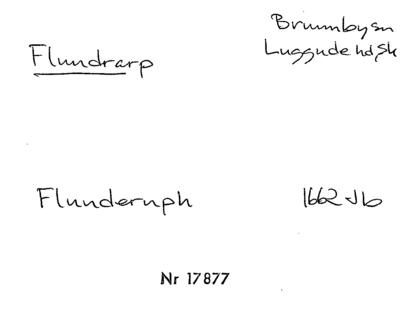 Flundrarp
Brunnby sn
Luggude hd, Sk
Flundernph
1662 Jb
Nr 17877